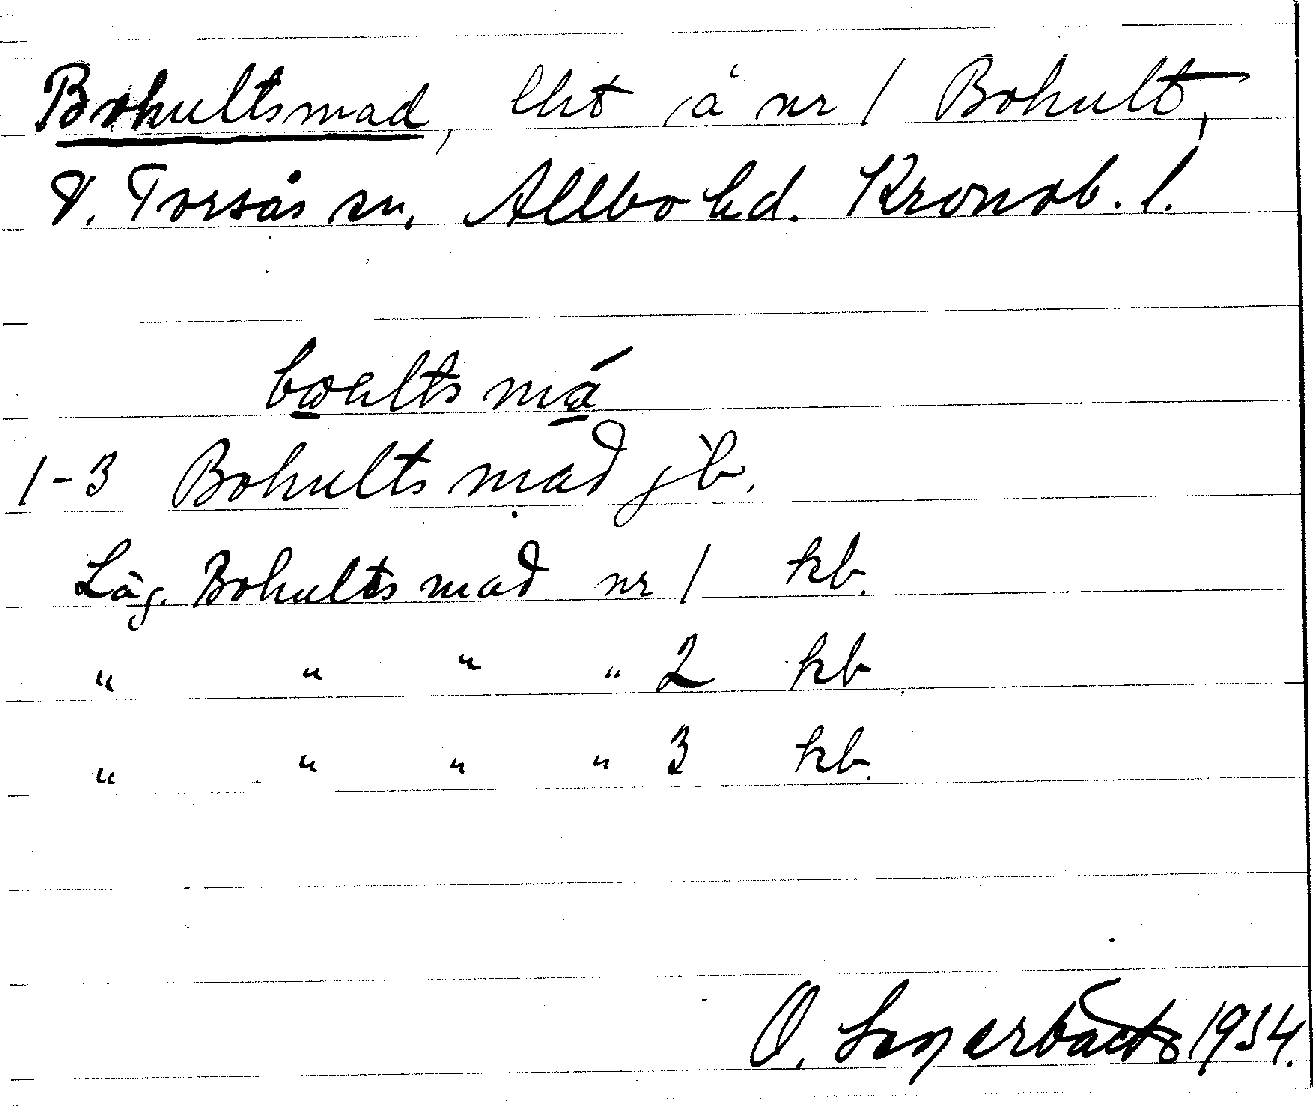 Bohultsmad, lht å nr 1 Bohult,
V. Torsås sn, Allbo hd. Kronob. l.
1-3 Bohults mad jb.
Läg. Bohults mad nr 1 kb.
" " " " 2 kb
" " " " 3 kb.
O. 1934.